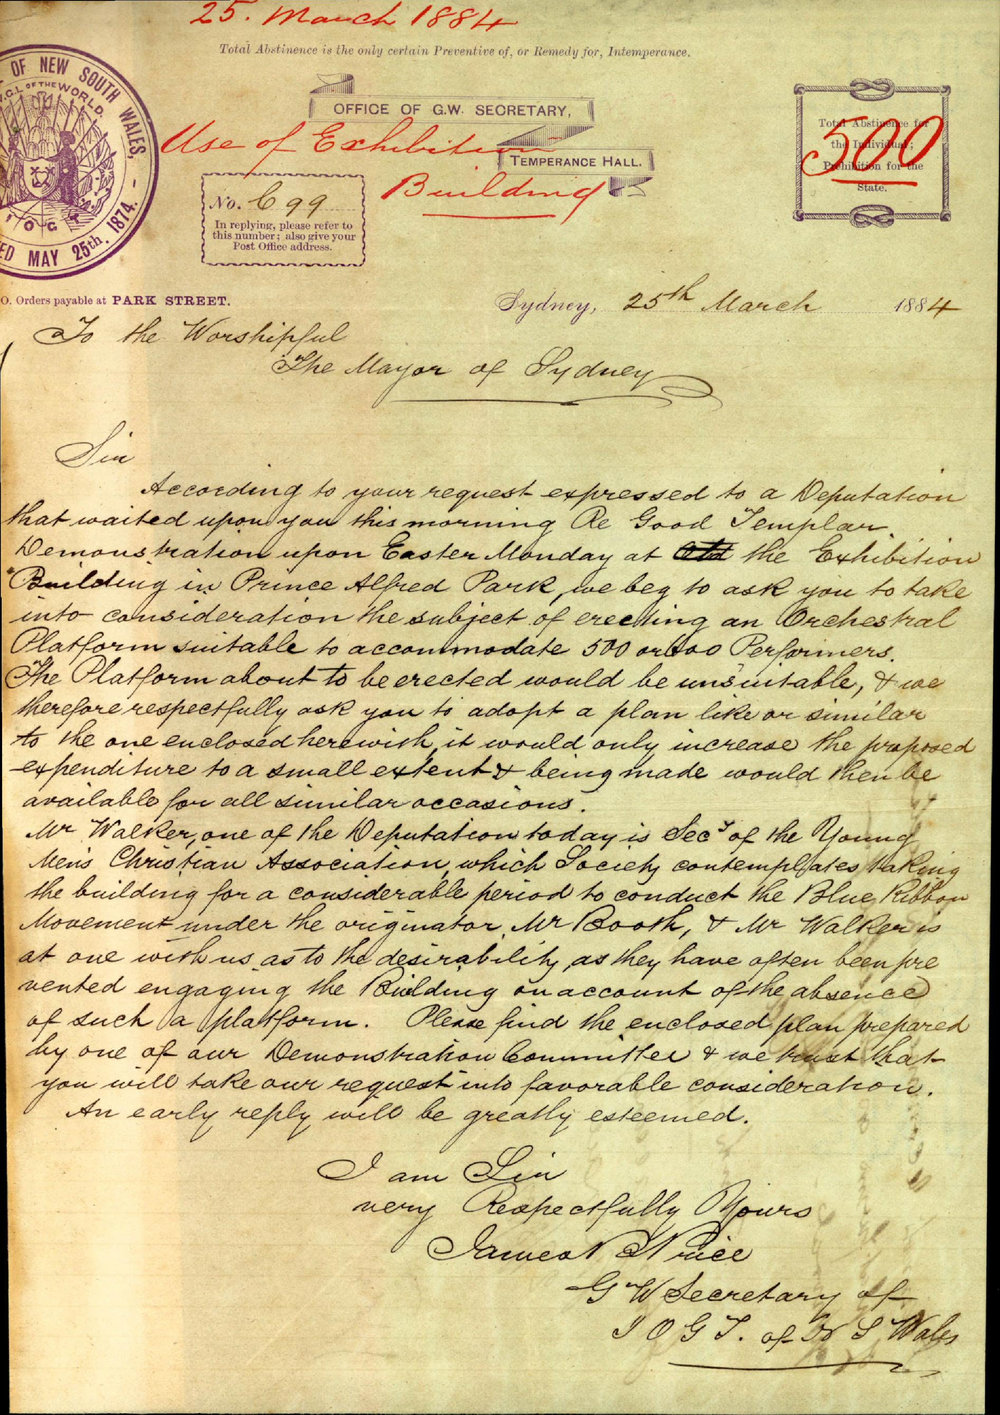 25. March 1884
Total Abstinence is the only certain Preventive of, or Remedy for, Intemperance.
OF NEW SOUTH WALES,
OF THE WORLD.
I O G T
MAY 25th. 1874.
OFFICE OF G.W. SECRETARY,
TEMPERANCE HALL.
Use of Exhibition
Building
Total Abstinence for
the Individual;
Prohibition for the
State.
500
No. 699
In replying, please refer to
this number; also give your
Post Office address.
O. Orders payable at PARK STREET.
Sydney, 25th March 1884
To the Worshipful
The Mayor of Sydney
Sir
According to your request expressed to a Deputation
that waited upon you this morning Re Good Templar
Demonstration upon Easter Monday at the Exhibition
Building in Prince Alfred Park, we beg to ask you to take
into consideration the subject of erecting an Orchestral
Platform suitable to accommodate 500 or 600 Performers.
The Platform about to be erected would be unsuitable, & we
therefore respectfully ask you to adopt a plan like or similar
to the one enclosed herewith, it would only increase the proposed
expenditure to a small extent & being made would then be
available for all similar occasions.
Mr Walker, one of the Deputation today is Secy of the Young
Mens Christian Association, which Society contemplates taking
the building for a considerable period to conduct the Blue Ribbon
Movement under the originator, Mr Booth, & Mr Walker is
at one with us as to the desirability, as they have often been pre
vented engaging the Building on account of the absence
of such a platform. Please find the enclosed plan prepared
by one of our Demonstration Committee & we trust that
you will take our request into favorable consideration.
An early reply will be greatly esteemed.
I am Sir
very Respectfully Yours
James
G W Secretary of
I O G T. of N S Wales